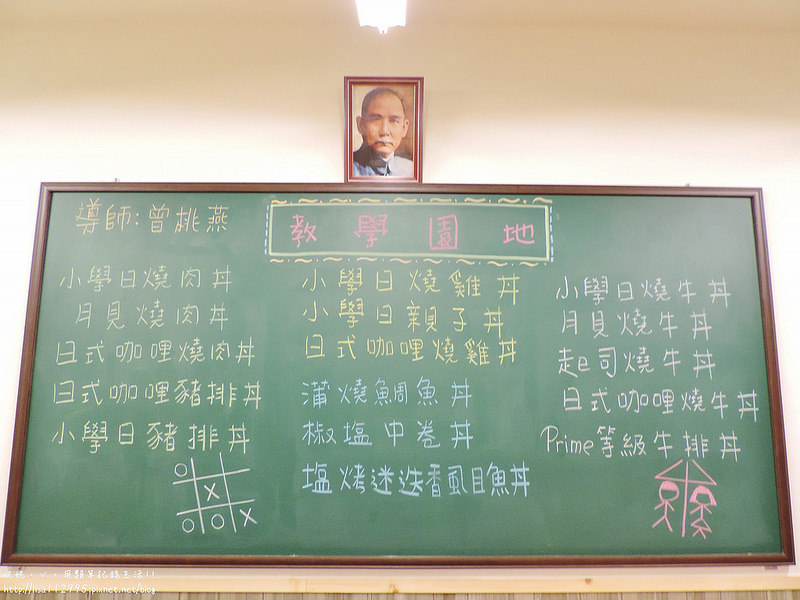 導師:曾桃燕
教學園地
小學日燒肉丼
月見燒肉丼
日式咖哩燒肉丼
日式咖哩豬排丼
小學日豬排丼
小學日燒雞丼
小學日親子丼
日式咖哩燒雞丼
蒲燒鯛魚丼
椒塩中卷丼
塩烤迷迭香虱目魚丼
小學日燒牛丼
月見燒牛丼
起司燒牛丼
日式咖哩燒牛丼
Prime等級牛排丼
O
X
O O X